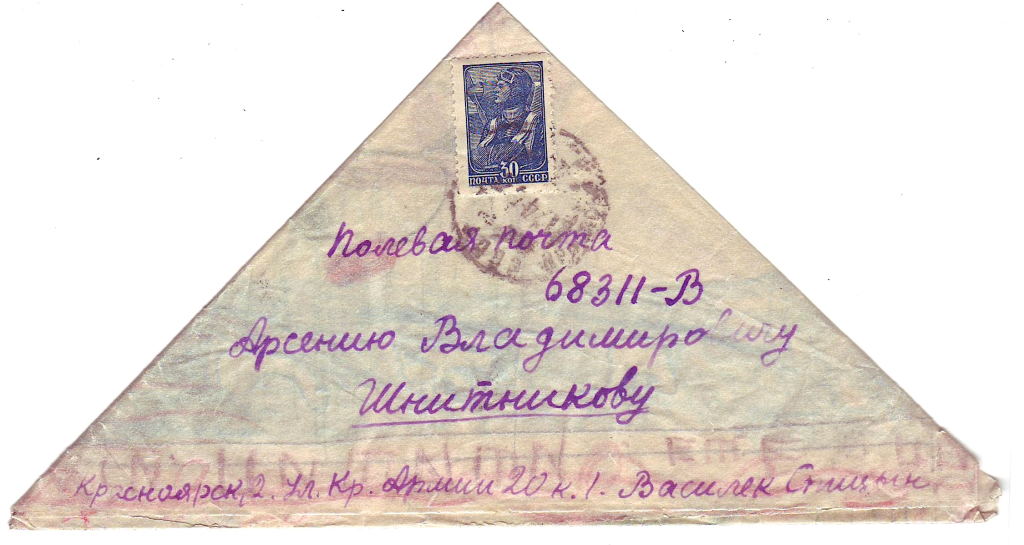 30
ПОЧТА КОП СССР
Полевая почта
68311-В
Арсению Владимировичу
Шнитникову
Красноярск, 2. Ул. Кр. Армии 20 к. 1. Василек Спицын